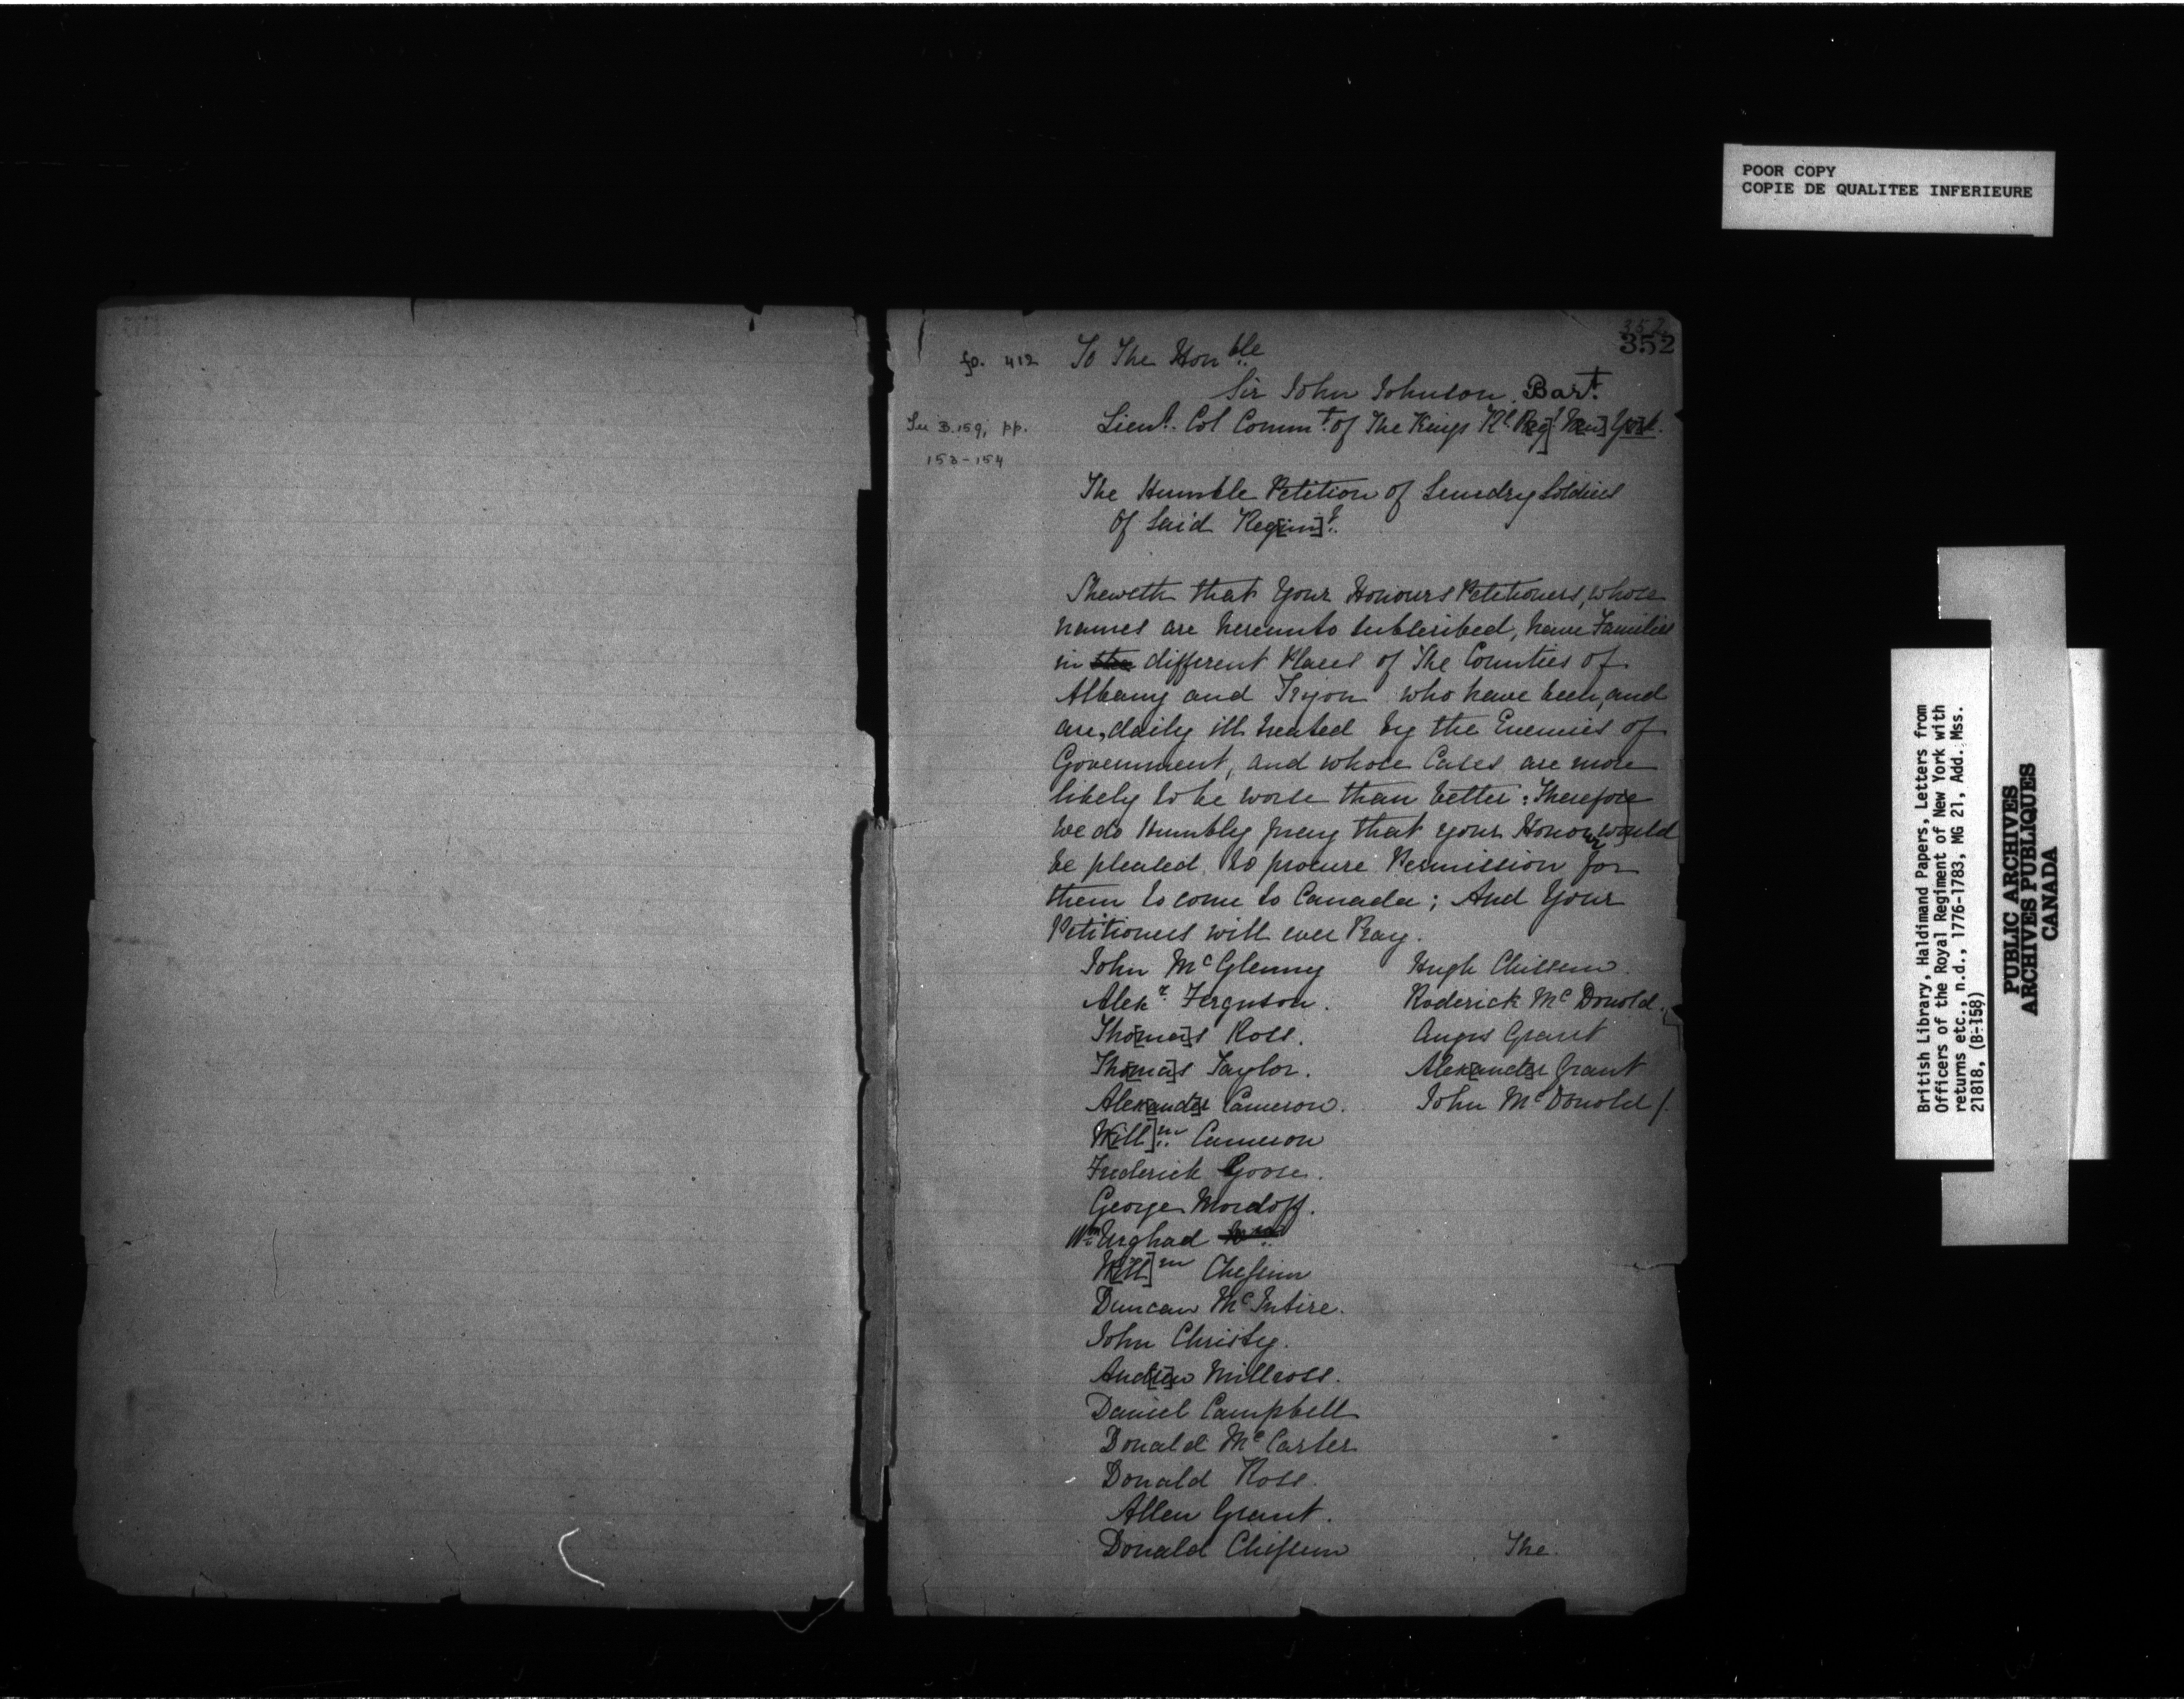 POOR COPY
COPIE DE QUALITEE INFERIEURE
352
352
fo. 412 To The Honble
Sir John Johnson, Bart.
See B.159, pp.
153-154
Lieut. Col Commt. of The Kings Rl Reg[t. New] York.
The Humble Petition of Sundry Soldiers
Of Said Reg[im]t.
Sheweth that Your Honours Petitioners, whose
names are hereunto subscribed, have Families
in different Places of The Counties of
Albany and Tryon who have been, and
are, daily ill treated by the Enemies of
Government, and whose Cases are more
likely to be worse than better: Therefore
We do Humbly pray that your Honour would
be pleased to procure Permission for
them to come to Canada; And Your
Petitioners will ever Pray.
John McGlenny
Alexr. Ferguson.
Tho[ma]s Ross.
Tho[ma]s Taylor.
Alex[ande]r Cameron.
W[ill]m. Cameron
Frederick Goose.
George Mordoff.
Wm. Urghad
W[ill]m Chessim
Duncan McIntire.
John Christy.
And[re]w Millross.
Daniel Campbell
Donald McCarter
Donald Ross.
Allen Grant.
Donald Chissem
Hugh Chissem.
Roderick McDonold.
Angus Grant
Alex[ande]r Grant
John McDonold/.
The
British Library, Haldimand Papers, Letters from
Officers of the Royal Regiment of New York with
returns etc., n.d., 1776-1783, MG 21, Add. Mss.
21818, (B-158)
PUBLIC ARCHIVES
ARCHIVES PUBLIQUES
CANADA